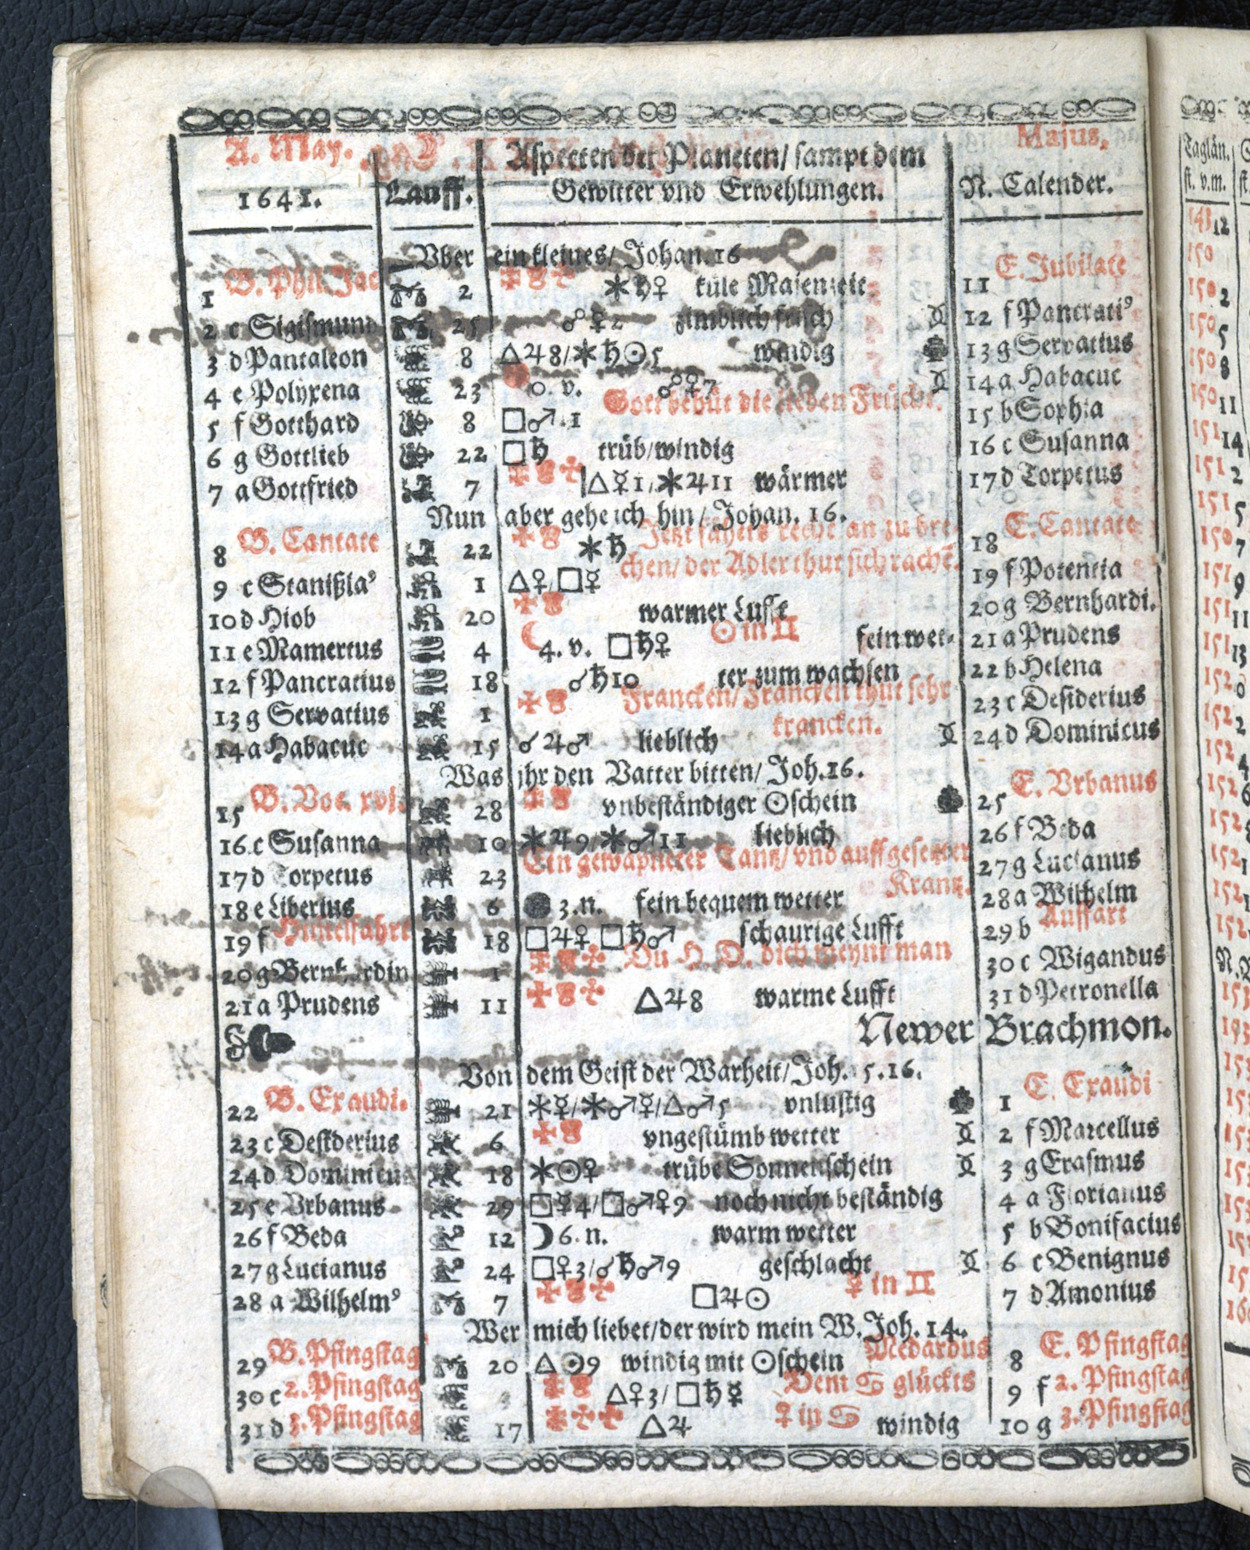 A. May.
Majus.
Aspecten der Planeten/ sampt dem
1641.
Lauff.
Gewitter vnd Erwehlungen.
N. Calender.
Vber ein kleines/ Johan. 16
1 B. Phil. Jac 2 ⚹♄♀ küle Maienzeit 11 E. Jubilate
2 c Sigismund 25 zimblich frisch 12 f Pancrati⁹
3 d Pantaleon 8 △♃8/⚹♄☉5 windig 13 g Servatius
4 e Polyxena 23 o. v. ☍♀7 14 a Habacuc
Gott behüt die lieben Frücht.
5 f Gotthard 8 □♂.1 15 b Sophia
6 g Gottlieb 22 □♄ trüb/windig 16 c Susanna
7 a Gottfried 7 △☿1/⚹♃11 wärmer 17 d Torpetus
Nun aber gehe ich hin/ Johan. 16.
8 B. Cantate 22 ⚹♄ Jetzt fahets recht an zu bre- 18 E. Cantate
chen/ der Adler thut sich rachẽ.
9 c Stanißla⁹ 1 △♀/□☿ 19 f Potentia
10 d Hiob 20 warmer Lufft 20 g Bernhardi.
11 e Mamertus 4 ☾ 4. v. □♄♀ ☉ in ♊ fein wet- 21 a Prudens
12 f Pancratius 18 ☌♄10 ter zum wachsen 22 b Helena
13 g Servatius 1 Francken/ Francken thut sehr 23 c Desiderius
krancken.
14 a Habacuc 15 ☌♃♂ lieblich 24 d Dominicus
Was jhr den Vatter bitten/ Joh. 16.
15 B. Voc. 28 vnbeständiger ☉schein 25 E. Vrbanus
16 c Susanna 10 ⚹♃9/⚹♂11 lieblich 26 f Beda
17 d Torpetus 23 Ein gewapneter Tantz/ vnd auffgesetzter 27 g Lucianus
Krantz.
18 e Liberius 6 3. n. fein bequem wetter 28 a Wilhelm
19 f Himelfahrt 18 □♃♀ □♄♂ schaurige Lufft 29 b Auffart
20 g Bernhardin 1 Du H. D. dich meynt man 30 c Wigandus
21 a Prudens 11 △♃8 warme Lufft 31 d Petronella
Newer Brachmon.
Von dem Geist der Warheit/ Joh. 15.16.
22 B. Exaudi. 21 ⚹☿/⚹♂☿/△♂5 vnlustig 1 E. Exaudi
23 c Desiderius 6 vngestümb wetter 2 f Marcellus
24 d Dominicus 18 ⚹☉♀ trübe Sonnenschein 3 g Erasmus
25 e Vrbanus 29 □☿4/□♂♀9 noch nicht beständig 4 a Florianus
26 f Beda 12 ☽ 6. n. warm wetter 5 b Bonifacius
27 g Lucianus 24 □♀3/☌♄♂9 geschlacht 6 c Benignus
28 a Wilhelm⁹ 7 □♃☉ ♀ in ♊ 7 d Amonius
Wer mich liebet/ der wird mein W. Joh. 14.
29 B. Pfingstag 20 △☉9 windig mit ☉schein Medardus 8 E. Pfingstag
30 c 2. Pfingstag △♀3/□♄☿ Dem ♋ glückts 9 f 2. Pfingstag
31 d 3. Pfingstag 17 △♃ ♀ in ♋ windig 10 g 3. Pfingstag